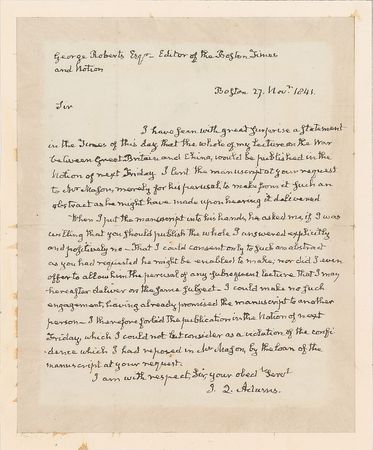 George Roberts Esqr. Editor of the Boston Times
and Notion
Boston 27. Novr. 1841.
Sir
I have seen with great surprise a statement
in the Times of this day that the whole of my Lecture on the War
between Great Britain and China, would be published in the
Notion of next Friday. I lent the manuscript at your request
to Mr Mason, merely for his perusal, to make from it such an
abstract as he might have made upon hearing it delivered
When I put the manuscript into his hands, he asked me, if I was
willing that you should publish the whole. I answered explicitly
and positively no—That I could consent only to such an abstract
as you had requested he might be enabled to make; nor did I even
offer to allow him the perusal of any subsequent lecture that I may
hereafter deliver on the same subject—I could make no such
engagement; having already promised the manuscript to another
person—I therefore forbid the publication in the Notion of next
Friday, which I could not but consider as a violation of the confi-
dence which I had reposed in Mr Mason, by the loan of the
manuscript at your request.
I am with respect, Sir, your obedt Servt
J. Q. Adams.